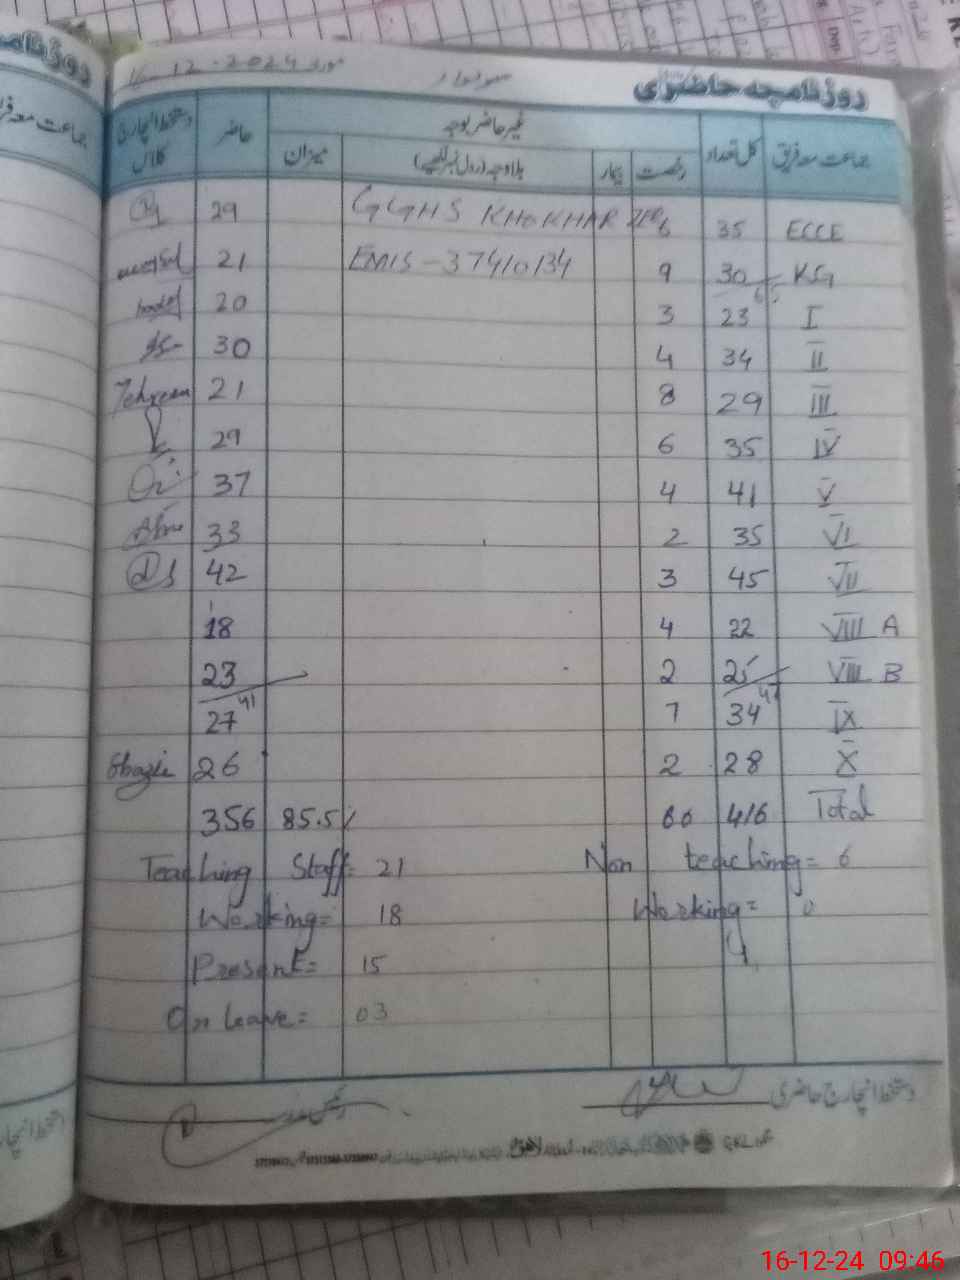 روزنامچہ حاضری سوموار مورخہ 16-12-2024
جماعت معہ فریق کل تعداد غیر حاضر بوجہ حاضر دستخط انچارج کلاس
رخصت بیمار بلاوجہ (رول نمبر لکھیے) میزان
ECCE 35 6 GGHS KHOKHAR ZER 29
KG 30 65 9 EMIS-37410134 21
I 23 3 20
II 34 4 30
III 29 8 21 Tehreem
IV 35 6 29
V 41 4 37
VI 35 2 33
VII 45 3 42
VIII A 22 4 18
VIII B 25 47 2 23 41
IX 34 7 27
X 28 2 26 Shazia
Total 416 60 85.5% 356
Teaching Staff = 21 Non teaching = 6
Working = 18 Working =
Present = 15 4
On leave = 03
دستخط انچارج حاضری
جماعت معہ فریق
روزنامچہ
16-12-24 09:46